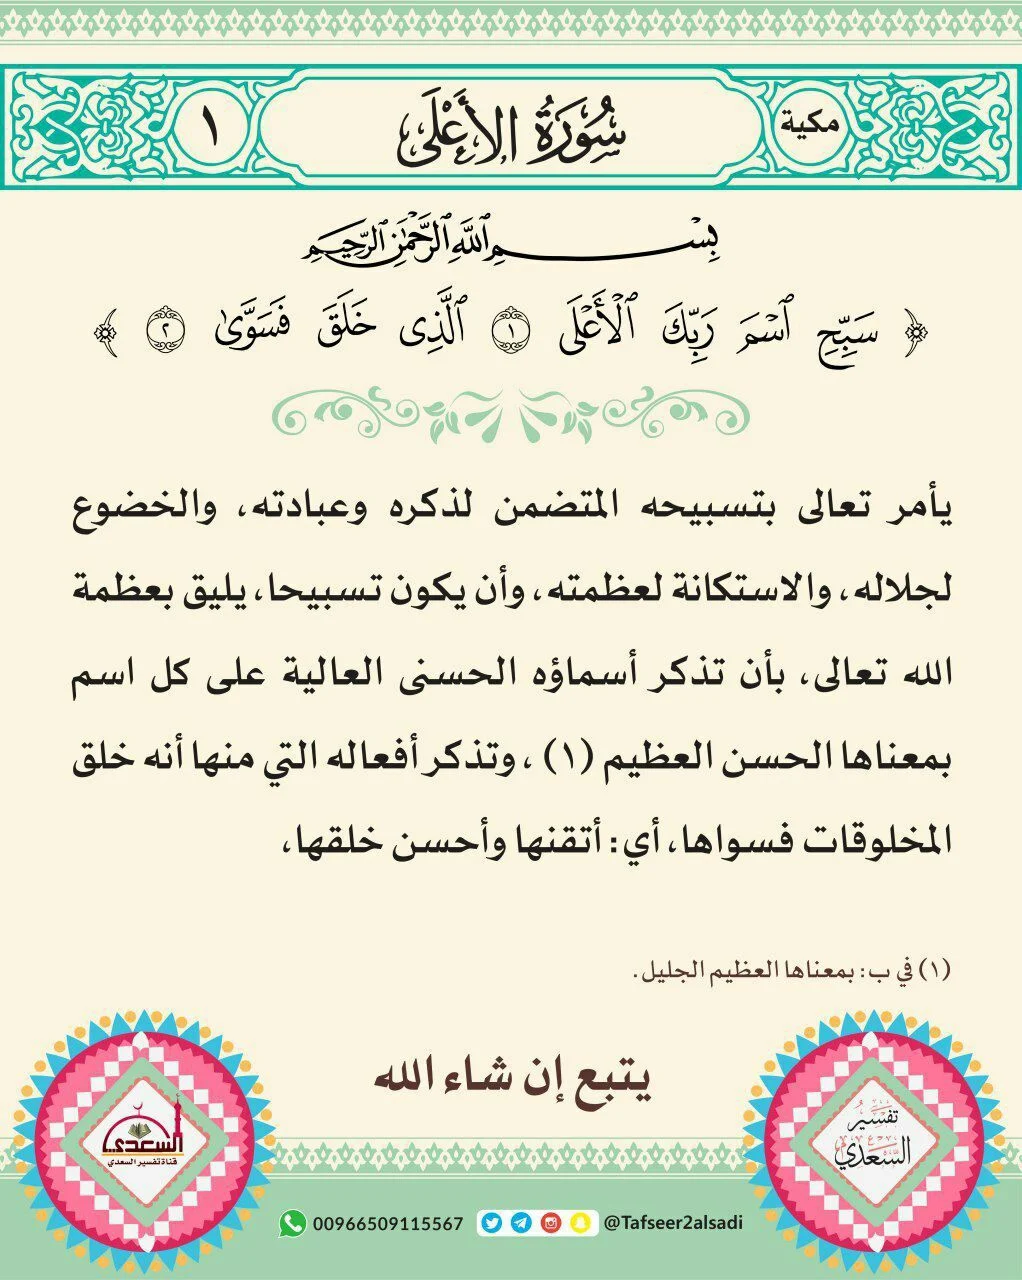 مكية
سُورَةُ الأَعْلَى
١
بِسْمِ اللَّهِ الرَّحْمَٰنِ الرَّحِيمِ
﴿ سَبِّحِ ٱسْمَ رَبِّكَ ٱلْأَعْلَى ١ ٱلَّذِى خَلَقَ فَسَوَّىٰ ٢ ﴾
يأمر تعالى بتسبيحه المتضمن لذكره وعبادته، والخضوع
لجلاله، والاستكانة لعظمته، وأن يكون تسبيحا، يليق بعظمة
الله تعالى، بأن تذكر أسماؤه الحسنى العالية على كل اسم
بمعناها الحسن العظيم (١) ، وتذكر أفعاله التي منها أنه خلق
المخلوقات فسواها، أي: أتقنها وأحسن خلقها،
(١) في ب: بمعناها العظيم الجليل.
يتبع إن شاء الله
تفسير
السعدي
السعدي
قناة تفسير السعدي
00966509115567
@Tafseer2alsadi